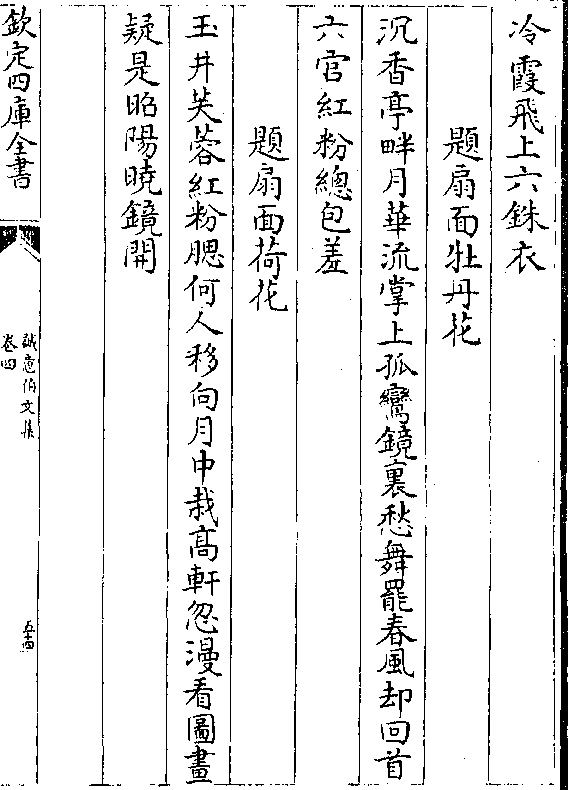 冷霞飛上六銖衣
題扇面牡丹花
沉香亭畔月華流掌上孤鸞鏡裏愁舞罷春風却回首
六宮紅粉總包羞
題扇面荷花
玉井芙蓉紅粉腮何人移向月中栽高軒忽漫看圖畫
疑是昭陽曉鏡開
欽定四庫全書
誠意伯文集
卷四
五十四